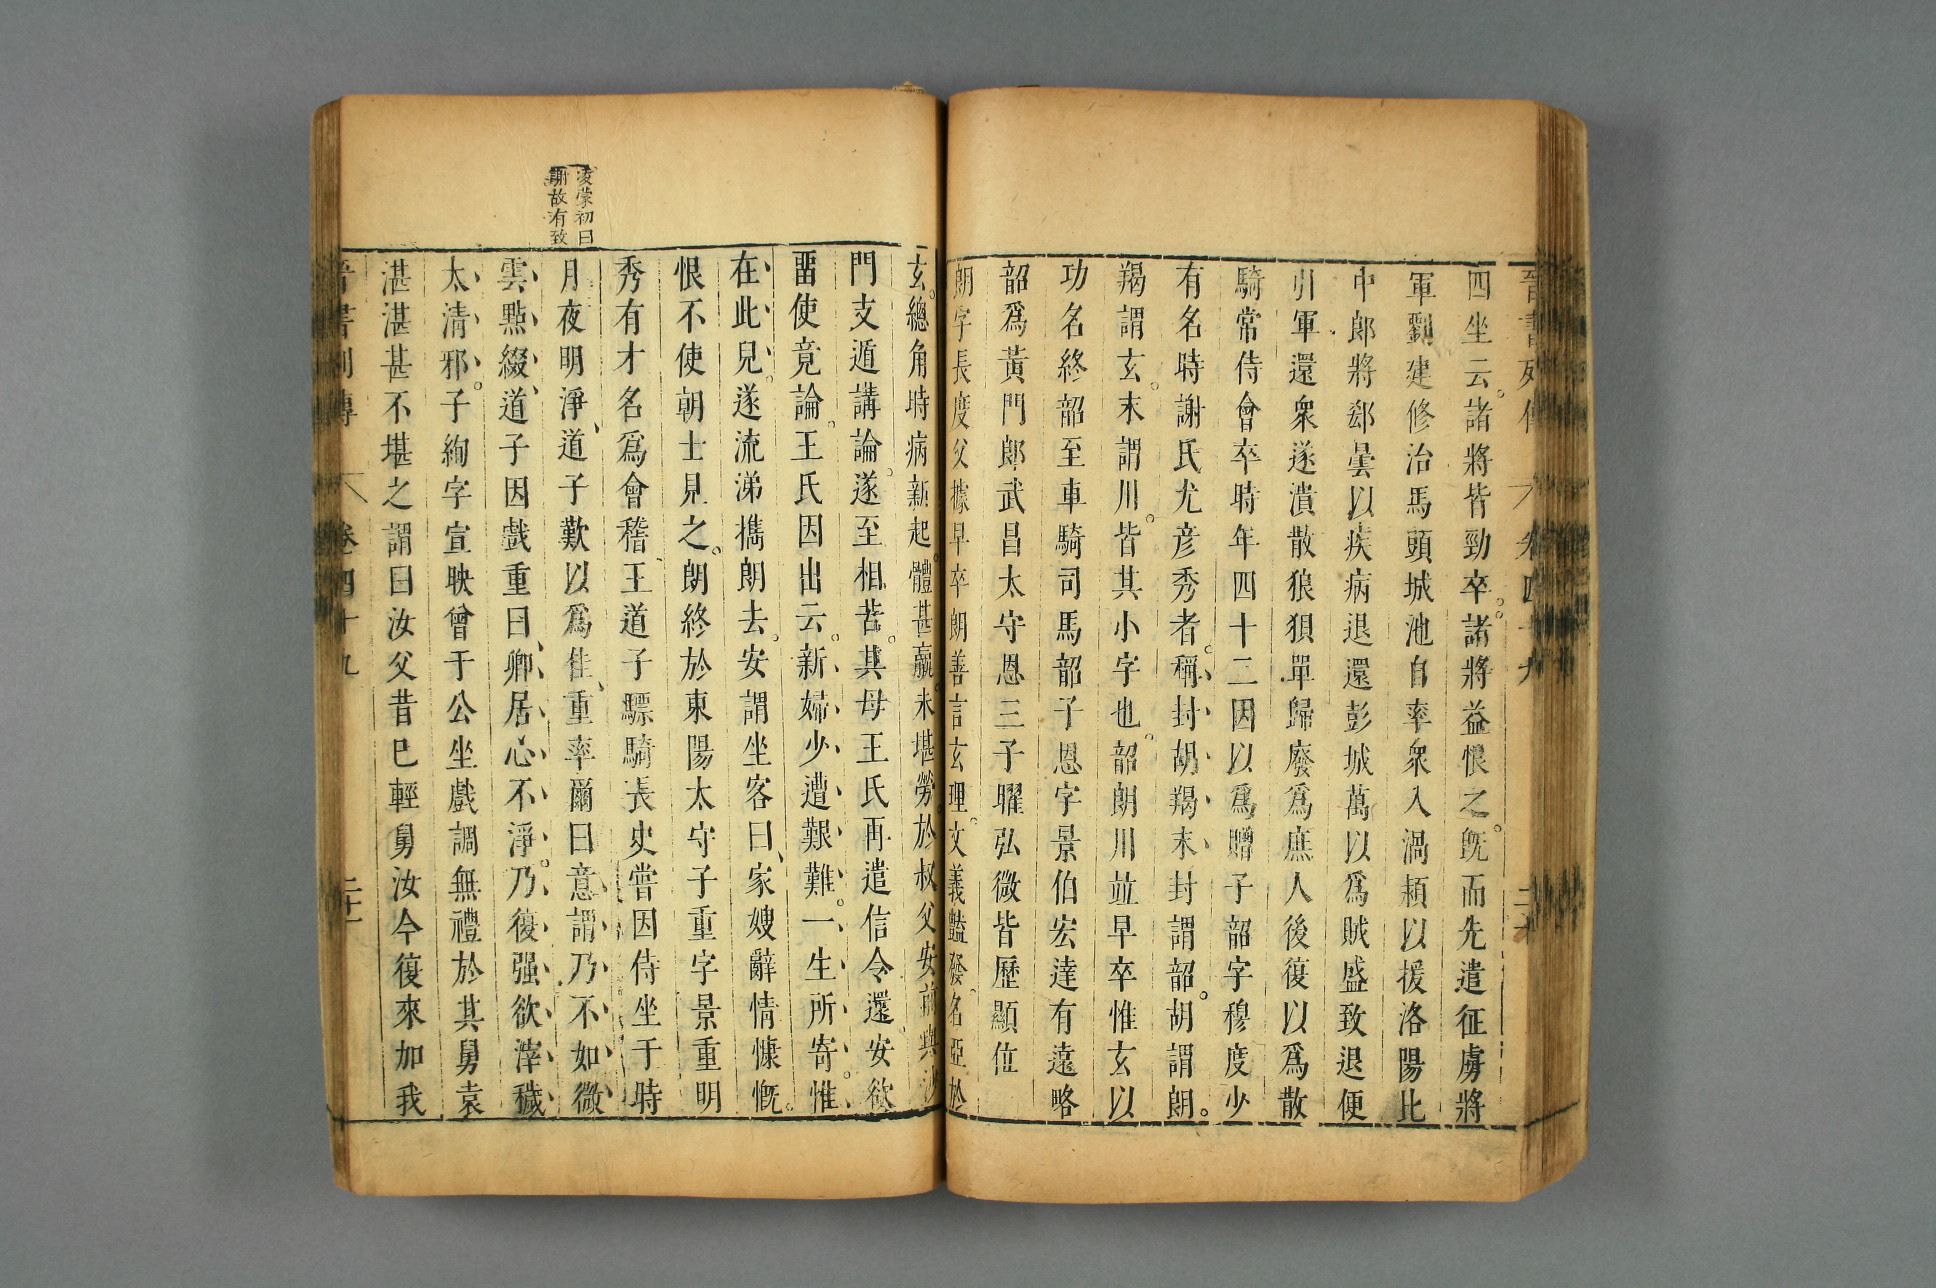 四坐云諸將皆勁卒諸將益恨之旣而先遣征虜將
軍劉建修治馬頭城池自率衆入渦潁以援洛陽北
中郎將郄曇以疾病退還彭城萬以爲賊盛致退便
引軍還衆遂潰散狼狽單歸廢爲庶人後復以爲散
騎常侍會卒時年四十二因以爲贈子韶字穆度少
有名時謝氏尤彥秀者稱封胡羯末封謂韶胡謂朗
羯謂玄末謂川皆其小字也韶朗川並早卒惟玄以
功名終韶至車騎司馬韶子恩字景伯宏達有遠略
韶爲黃門郎武昌太守恩三子曜弘微皆歷顯位
朗字長度父據早卒朗善言玄理文義豔發名亞於
玄總角時病新起體甚羸未堪勞於叔父安前與沙
門支遁講論遂至相苦其母王氏再遣信令還安欲
畱使竟論王氏因出云新婦少遭艱難一生所寄惟
在此兒遂流涕攜朗去安謂坐客曰家嫂辭情慷慨
恨不使朝士見之朗終於東陽太守子重字景重明
秀有才名爲會稽王道子驃騎長史嘗因侍坐于時
月夜明淨道子歎以爲佳重率爾曰意謂乃不如微
雲點綴道子因戲重曰卿居心不淨乃復强欲滓穢
太清邪子絢字宣映曾于公坐戲調無禮於其舅袁
湛湛甚不堪之謂曰汝父昔已輕舅汝今復來加我
晉書列傳 卷四十九 二十
凌濛初曰
謝故有致